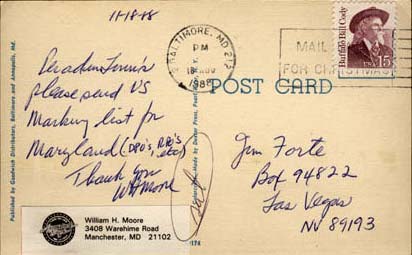 11-18-88
please send us
Marking list for
Maryland (DPO's, RPO's, etc)
Thank you
WHMoore
William H. Moore
3408 Warehime Road
Manchester, MD 21102
Published by Goodwin Distributors, Baltimore and Annapolis, Md.
BALTIMORE, MD 212
PM
18 NOV
1988
MAIL
FOR CHRISTMAS
Buffalo Bill Cody
USA 15
POST CARD
Jim Forte
Box 94822
Las Vegas
NV 89193